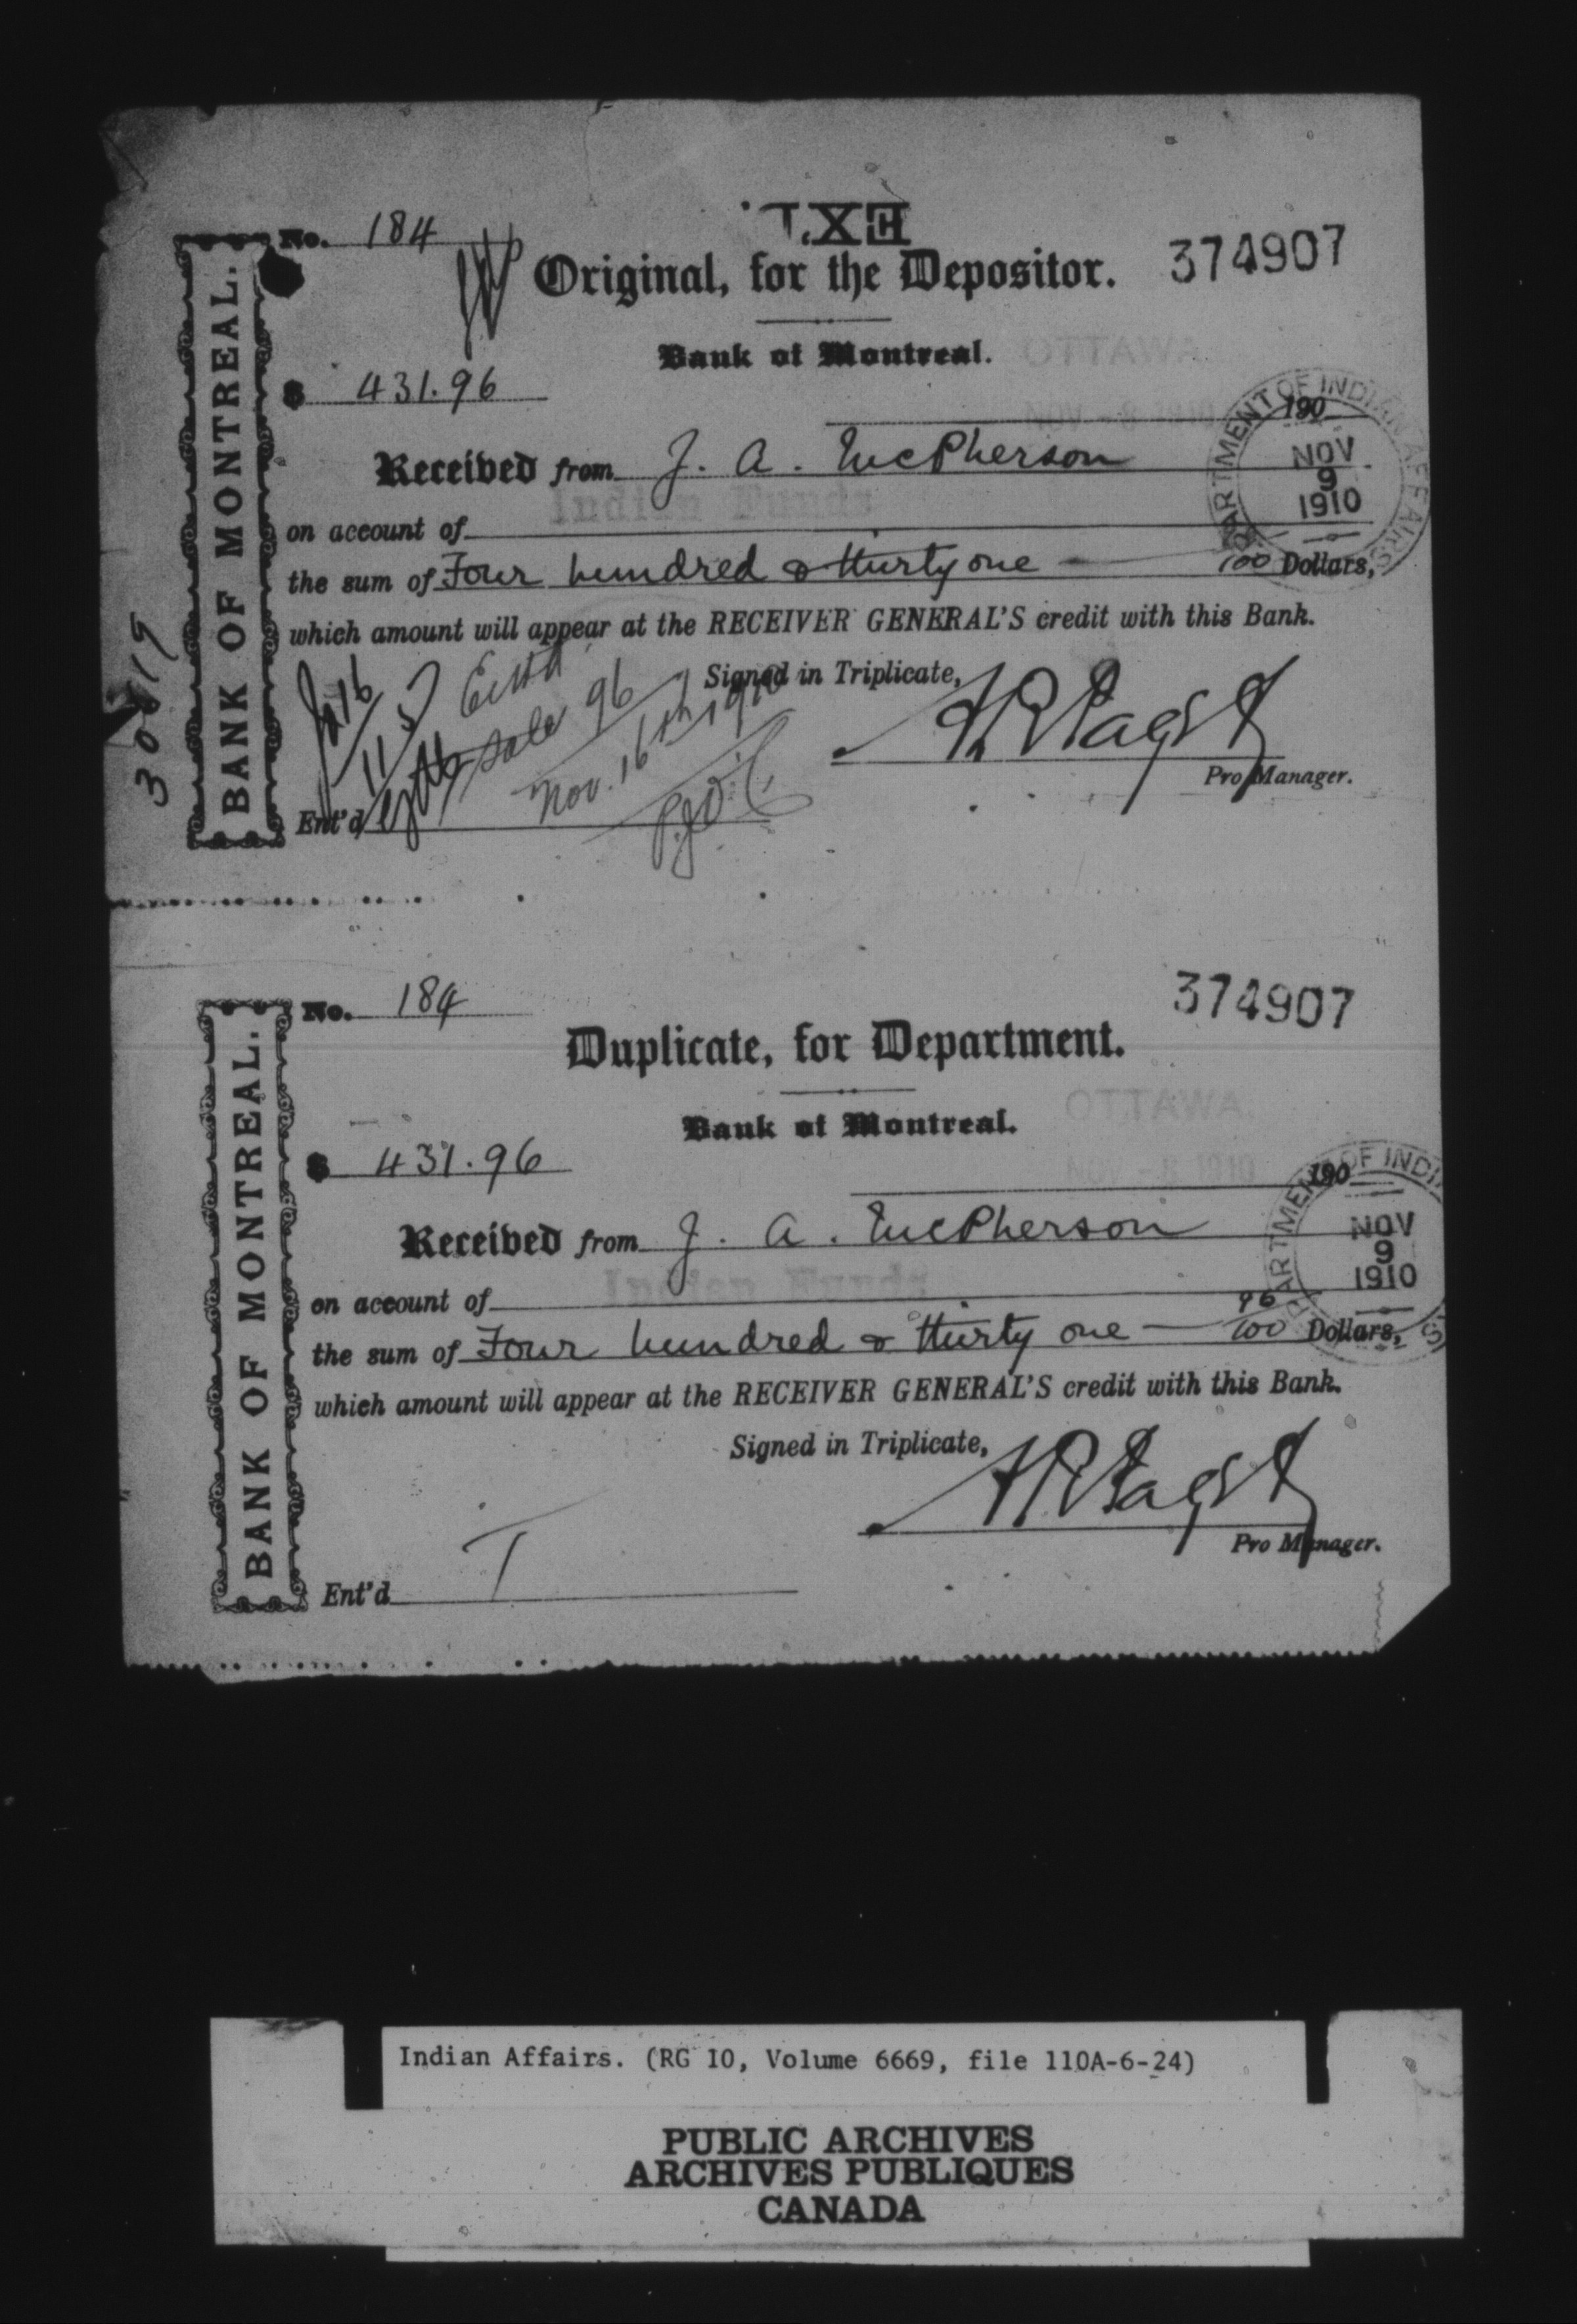 No. 184
374907
Original, for the Depositor.
BANK OF MONTREAL.
Bank of Montreal.
OTTAWA
NOV - 8 1910
$ 431.96
190
DEPARTMENT OF INDIAN AFFAIRS
NOV
9
1910
Received from J. A. McPherson
on account of Indian Funds
the sum of Four hundred & thirty one — 96/100 Dollars,
which amount will appear at the RECEIVER GENERAL'S credit with this Bank.
Signed in Triplicate,
Pro Manager.
sale 96
Nov. 16th 1910
Ent'd
30819
No. 184
374907
Duplicate, for Department.
BANK OF MONTREAL.
Bank of Montreal.
OTTAWA
1910
$ 431.96
190
NOV
9
1910
Received from J. A. McPherson
on account of Indian Funds
the sum of Four hundred & thirty one — 96/100 Dollars,
which amount will appear at the RECEIVER GENERAL'S credit with this Bank.
Signed in Triplicate,
Pro Manager.
Ent'd
Indian Affairs. (RG 10, Volume 6669, file 110A-6-24)
PUBLIC ARCHIVES
ARCHIVES PUBLIQUES
CANADA